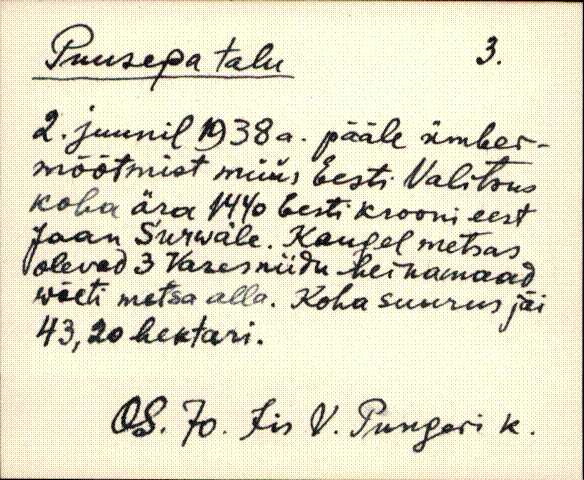 Puusepa talu 3.
2. juunil 1938 a. pääle ümber-
möötmist müüs Eesti Valitsus
koha ära 1440 Eesti krooni eest
Jaan Surwäle. Kaugel metsas
olevad 3 Varesniidu heinamaad
wõeti metsa alla. Koha suurus jäi
43,20 hektari.
OS. Jo. Iis V. Pungeri k.